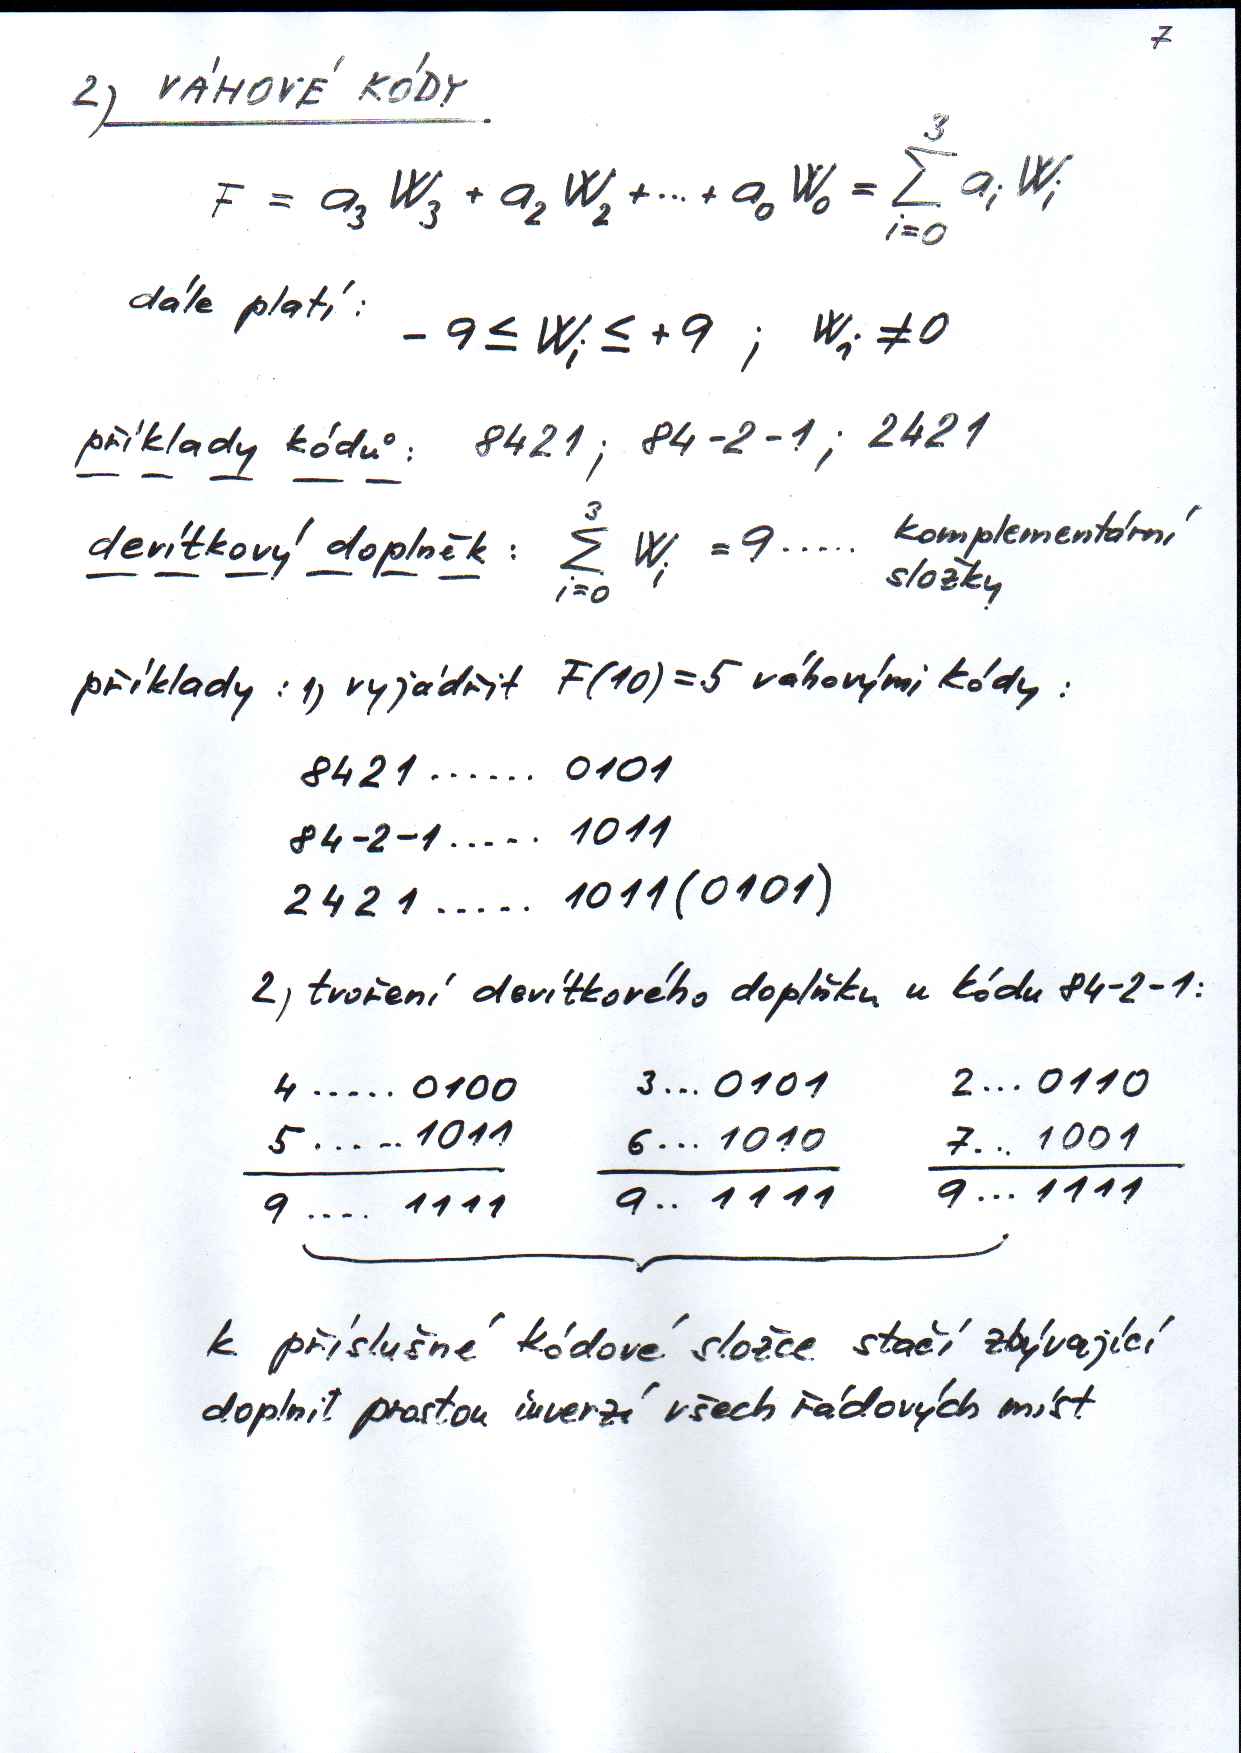 7
2) VÁHOVÉ KÓDY
F = a₃ W₃ + a₂ W₂ + ... + a₀ W₀ = ∑_{i=0}^{3} aᵢ Wᵢ
dále platí: - 9 ≤ Wᵢ ≤ + 9 ; Wᵢ ≠ 0
příklady kódů: 8421; 84-2-1; 2421
devítkový doplněk: ∑_{i=0}^{3} Wᵢ = 9 ..... komplementární
složky
příklady: 1) vyjádřit F(10) = 5 váhovými kódy:
8421 ...... 0101
84-2-1 ..... 1011
2421 ..... 1011 (0101)
2) tvoření devítkového doplňku u kódu 84-2-1:
4 ..... 0100 3 ... 0101 2 ... 0110
5 ..... 1011 6 ... 1010 7 ... 1001
9 .... 1111 9 .. 1111 9 ... 1111
k příslušné kódové složce stačí zbývající
doplnit prostou inverzí všech řádových míst